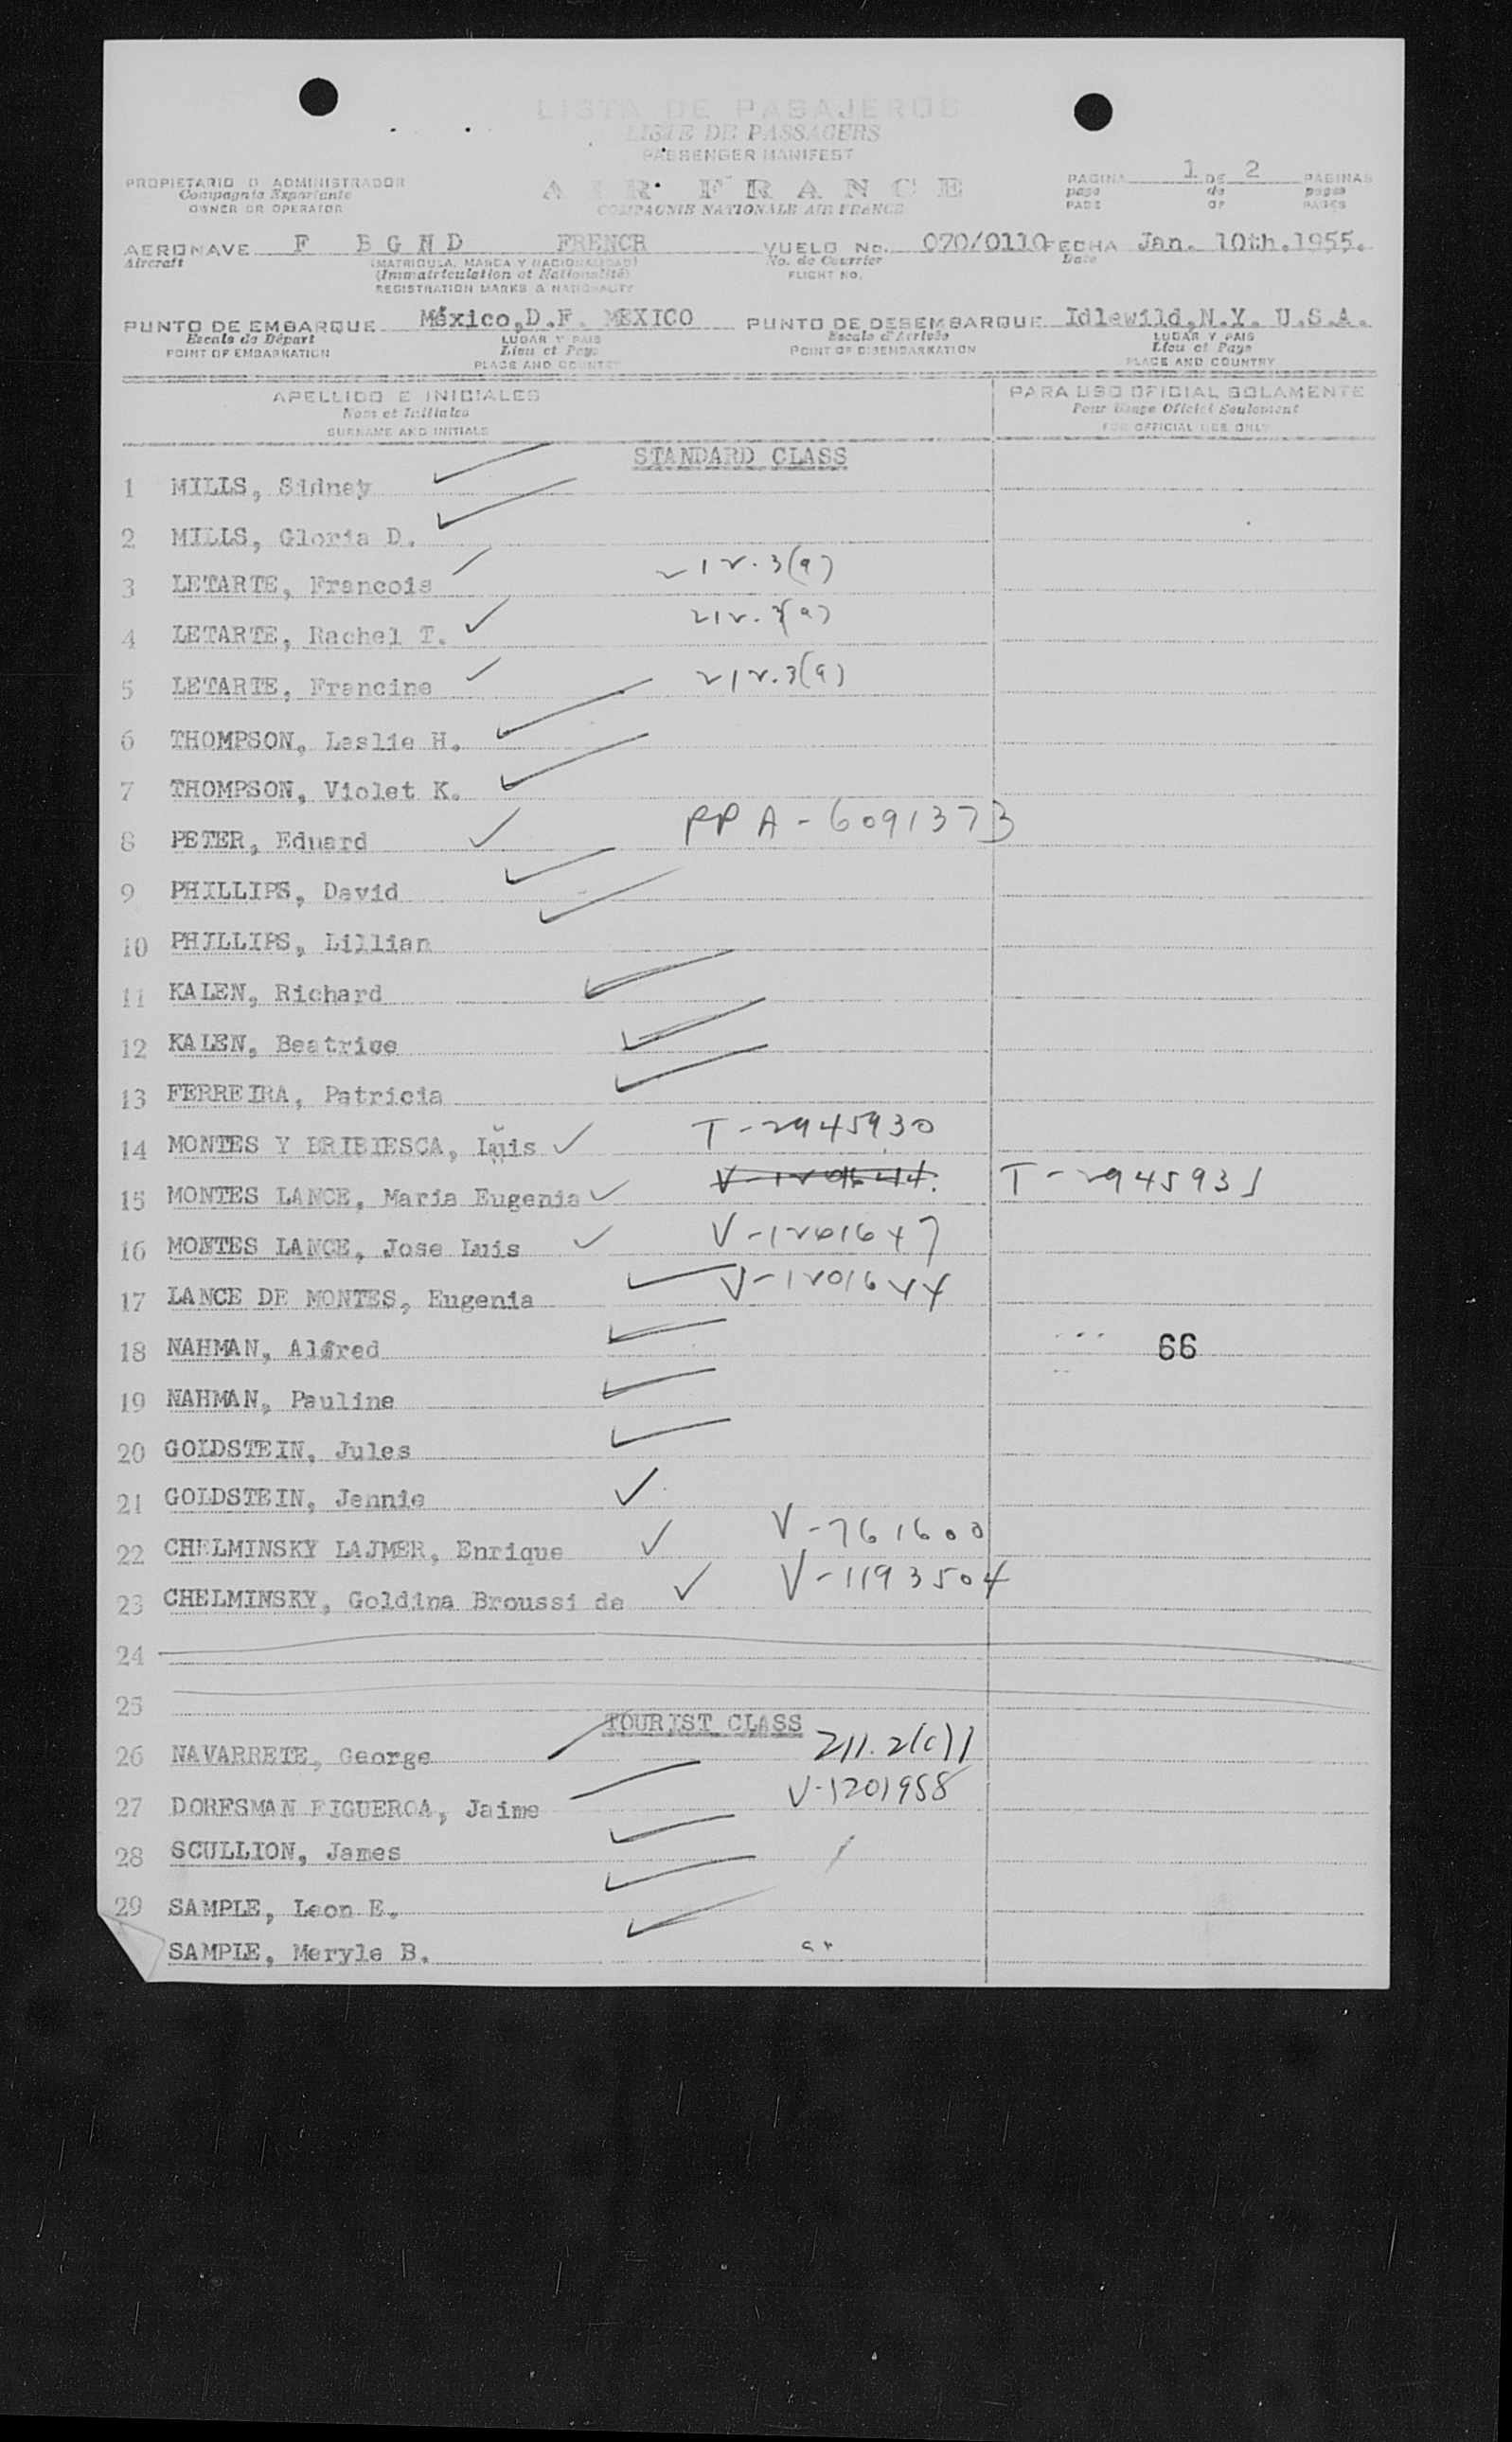 LISTA DE PASAJEROS
LISTE DE PASSAGERS
PASSENGER MANIFEST
PROPIETARIO O ADMINISTRADOR
OWNER OR OPERATOR
AIR FRANCE
COMPAGNIE NATIONALE AIR FRANCE
PAGINA 1 DE 2 PAGINAS
page de pages
PAGE OF PAGES
AERONAVE F BGND FRENCH VUELO No. 070/0110 FECHA Jan. 10th.1955.
Aircraft (MATRICULA, MARCA Y NACIONALIDAD) No. de Courrier Date
(Immatriculation et Nationalité) FLIGHT NO.
REGISTRATION MARKS & NATIONALITY
PUNTO DE EMBARQUE México,D.F. MEXICO PUNTO DE DESEMBARQUE Idlewild,N.Y. U.S.A.
Escale de Départ LUGAR Y PAIS Escale d'Arrivée LUGAR Y PAIS
POINT OF EMBARKATION Lieu et Pays POINT OF DISEMBARKATION Lieu et Pays
PLACE AND COUNTRY PLACE AND COUNTRY
APELLIDO E INICIALES PARA USO OFICIAL SOLAMENTE
Nom et Initiales Pour Usage Officiel Seulement
SURNAME AND INITIALS FOR OFFICIAL USE ONLY
STANDARD CLASS
1 MILLS, Sidney
2 MILLS, Gloria D.
3 LETARTE, Francois 212.3(a)
4 LETARTE, Rachel T. 212.3(a)
5 LETARTE, Francine 212.3(a)
6 THOMPSON, Leslie H.
7 THOMPSON, Violet K.
8 PETER, Eduard PP A-6091373
9 PHILLIPS, David
10 PHILLIPS, Lillian
11 KALEN, Richard
12 KALEN, Beatrice
13 FERREIRA, Patricia
14 MONTES Y BRIBIESCA, Luis T-2945930
15 MONTES LANCE, Maria Eugenia T-2945931
16 MONTES LANCE, Jose Luis V-1201647
17 LANCE DE MONTES, Eugenia V-1201644
18 NAHMAN, Alfred 66
19 NAHMAN, Pauline
20 GOLDSTEIN, Jules
21 GOLDSTEIN, Jennie
22 CHELMINSKY LAJMER, Enrique V-761600
23 CHELMINSKY, Goldina Broussi de V-1193504
24
25
TOURIST CLASS
26 NAVARRETE, George 211.2(c)1
27 DORFSMAN FIGUEROA, Jaime V-1201958
28 SCULLION, James
29 SAMPLE, Leon E.
SAMPLE, Meryle B.